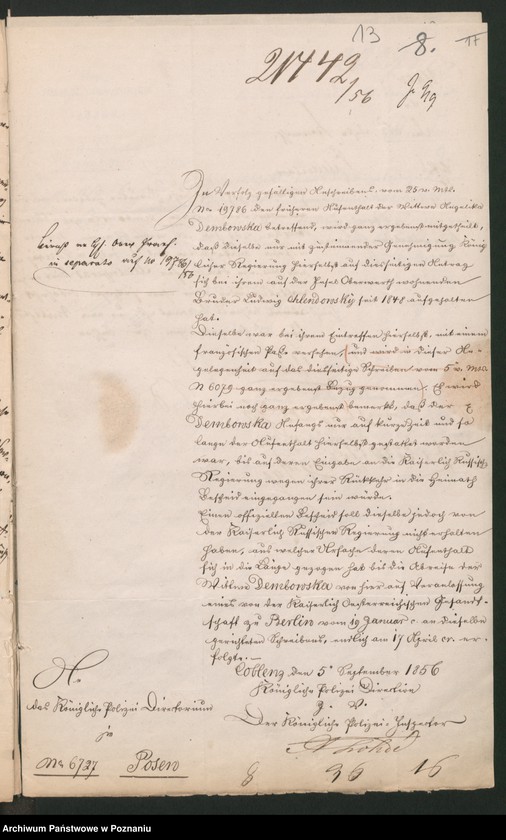 13 8. 17
21442
/56
In Verfolg gefälligen Anschreibens vom 25 v. Mts.
No 19786 den früheren Aufenthalt der Wittwe Angelika
Dembowska betreffend, wird ganz ergebenst mitgetheilt,
daß dieselbe nur mit zustimmender Genehmigung König
licher Regierung hierselbst auf diesseitigen Antrag
sich bei ihrem auf der Insel Oberwerth wohnenden
Bruder Ludwig Chlendowsky seit 1848 aufgehalten
hat.
in separato auf No 19786/56
Dieselbe war bei ihrem Eintreffen hierselbst, mit einem
französischen Passe versehen, und wird in dieser An-
gelegenheit auf das diesseitige Schreiben vom 5 v. Mts.
N 6079 ganz ergebenst Bezug genommen. Es wird
hierbei noch ganz ergebenst bemerkt, daß der
Dembowska Anfangs nur auf kurze Zeit und so
lange der Aufenthalt hierselbst gestattet worden
war, bis auf deren Eingabe an die Kaiserlich Russische
Regierung wegen ihrer Rückkehr in die Heimath
Bescheid eingegangen sein würde.
Einen offiziellen Bescheid soll dieselbe jedoch von
der Kaiserlich Russischen Regierung nicht erhalten
haben, aus welcher Ursache deren Aufenthalt
sich in die Länge gezogen hat bis die Abreise der
Wittwe Dembowska von hier auf Veranlassung
eines von der Kaiserlich Oesterreichischen Gesandt-
schaft zu Berlin vom 19 Januar c. an dieselbe
gerichteten Schreibens, endlich am 17 April cr. er-
folgte. —
Coblenz den 5t September 1856
Königliche Polizei Direction
J. V.
Der Königliche Polizei-Inspector
An
das Königliche Polizei Directorium
zu
No 6727 Posen
8 96 16
Archiwum Państwowe w Poznaniu